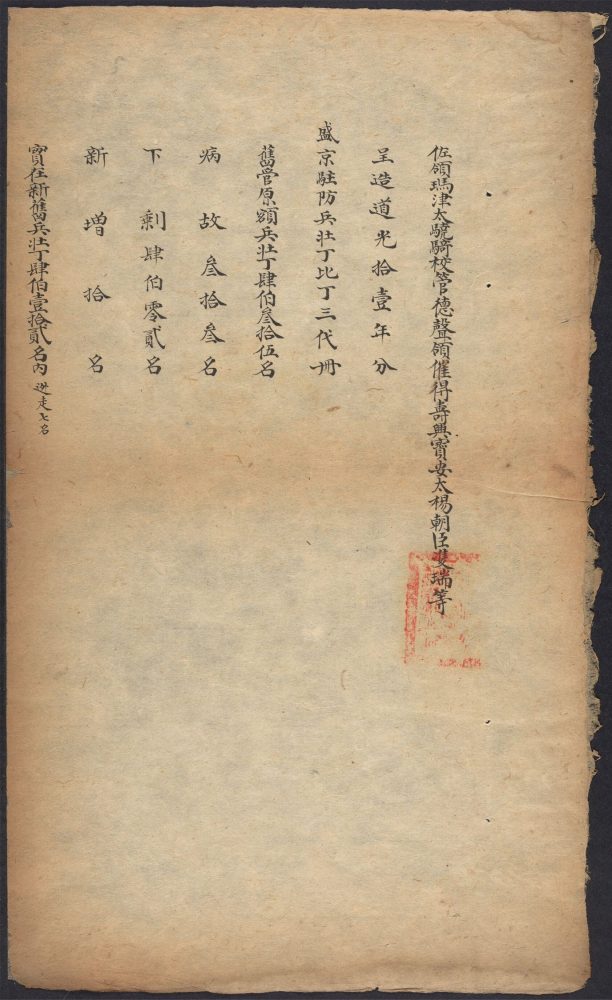 佐領瑪津太驍騎校管德聲領催得壽興寳安太楊朝臣雙瑞等
呈造道光拾壹年分
盛京駐防兵壯丁比丁三代冊
舊管原額兵壯丁肆伯叁拾伍名
病故叁拾叁名
下剩肆伯零貳名
新增拾名
實在新舊兵壯丁肆伯壹拾貳名內 逃走七名